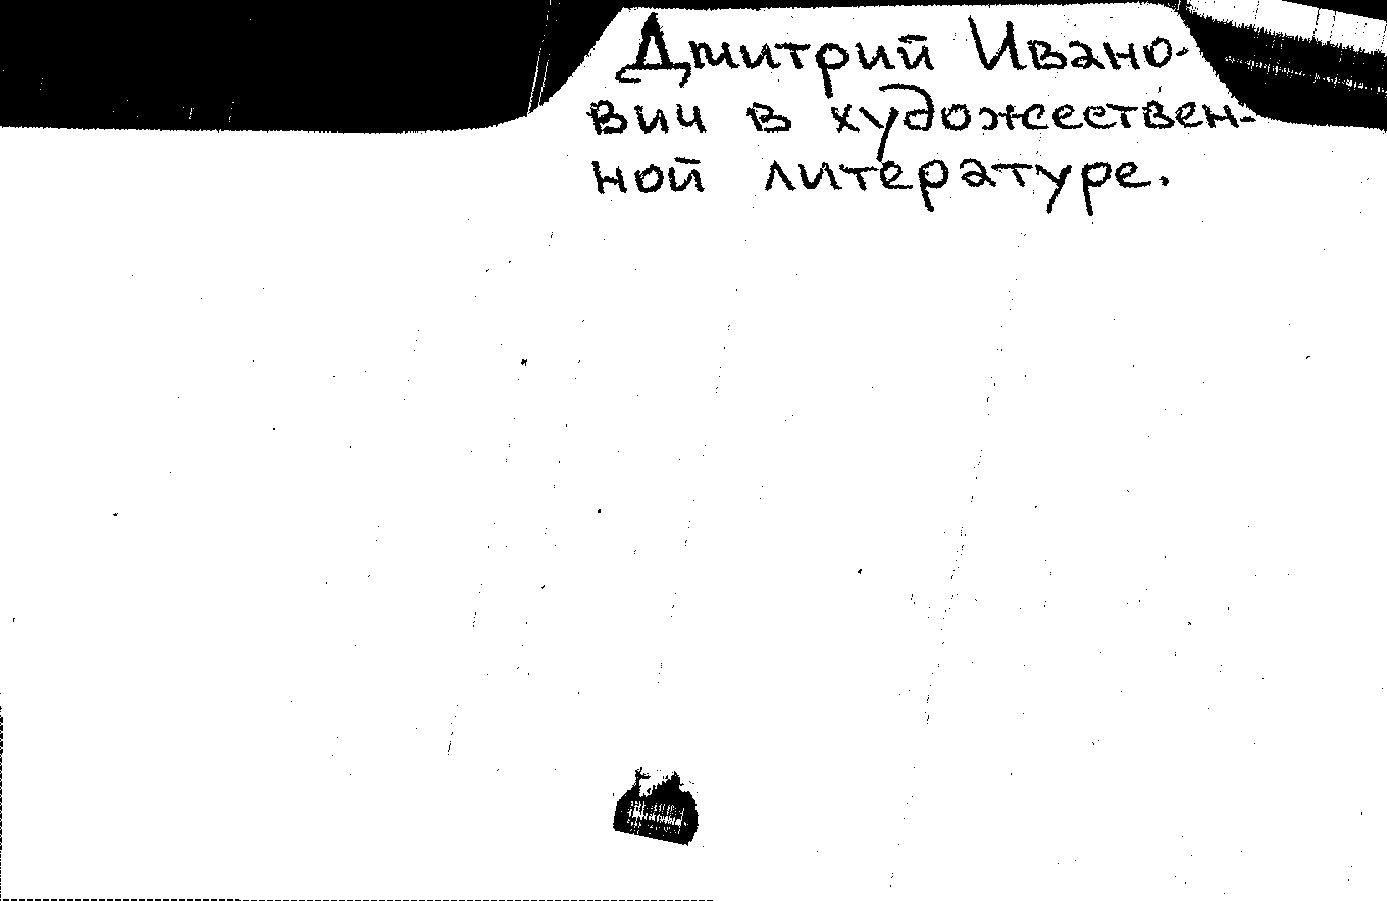 Дмитрий Ивано-
вич в художествен-
ной литературе.